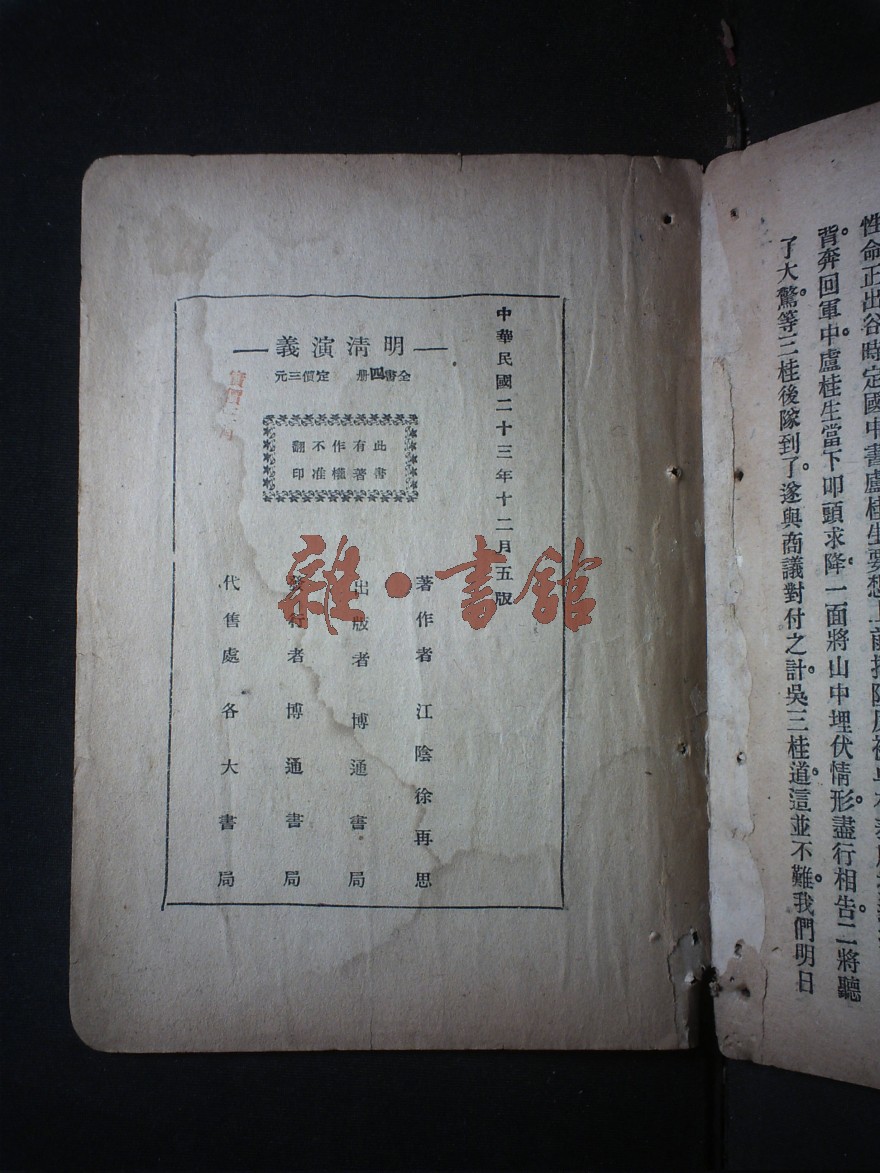 性命正出谷時定國中書盧桂生要想上前
背。奔回軍中。盧桂生當下叩頭求降。一面將山中埋伏情形。盡行相告。二將聽
了大驚。等三桂後隊到了。遂與商議對付之計。吳三桂道。這並不難。我們明日
中華民國二十三年十二月五版
明清演義
全書四册 定價三元
此書
有著
作權
不准
翻印
著作者 江陰徐再思
出版者 博通書局
發行者 博通書局
代售處 各大書局
雜·書館